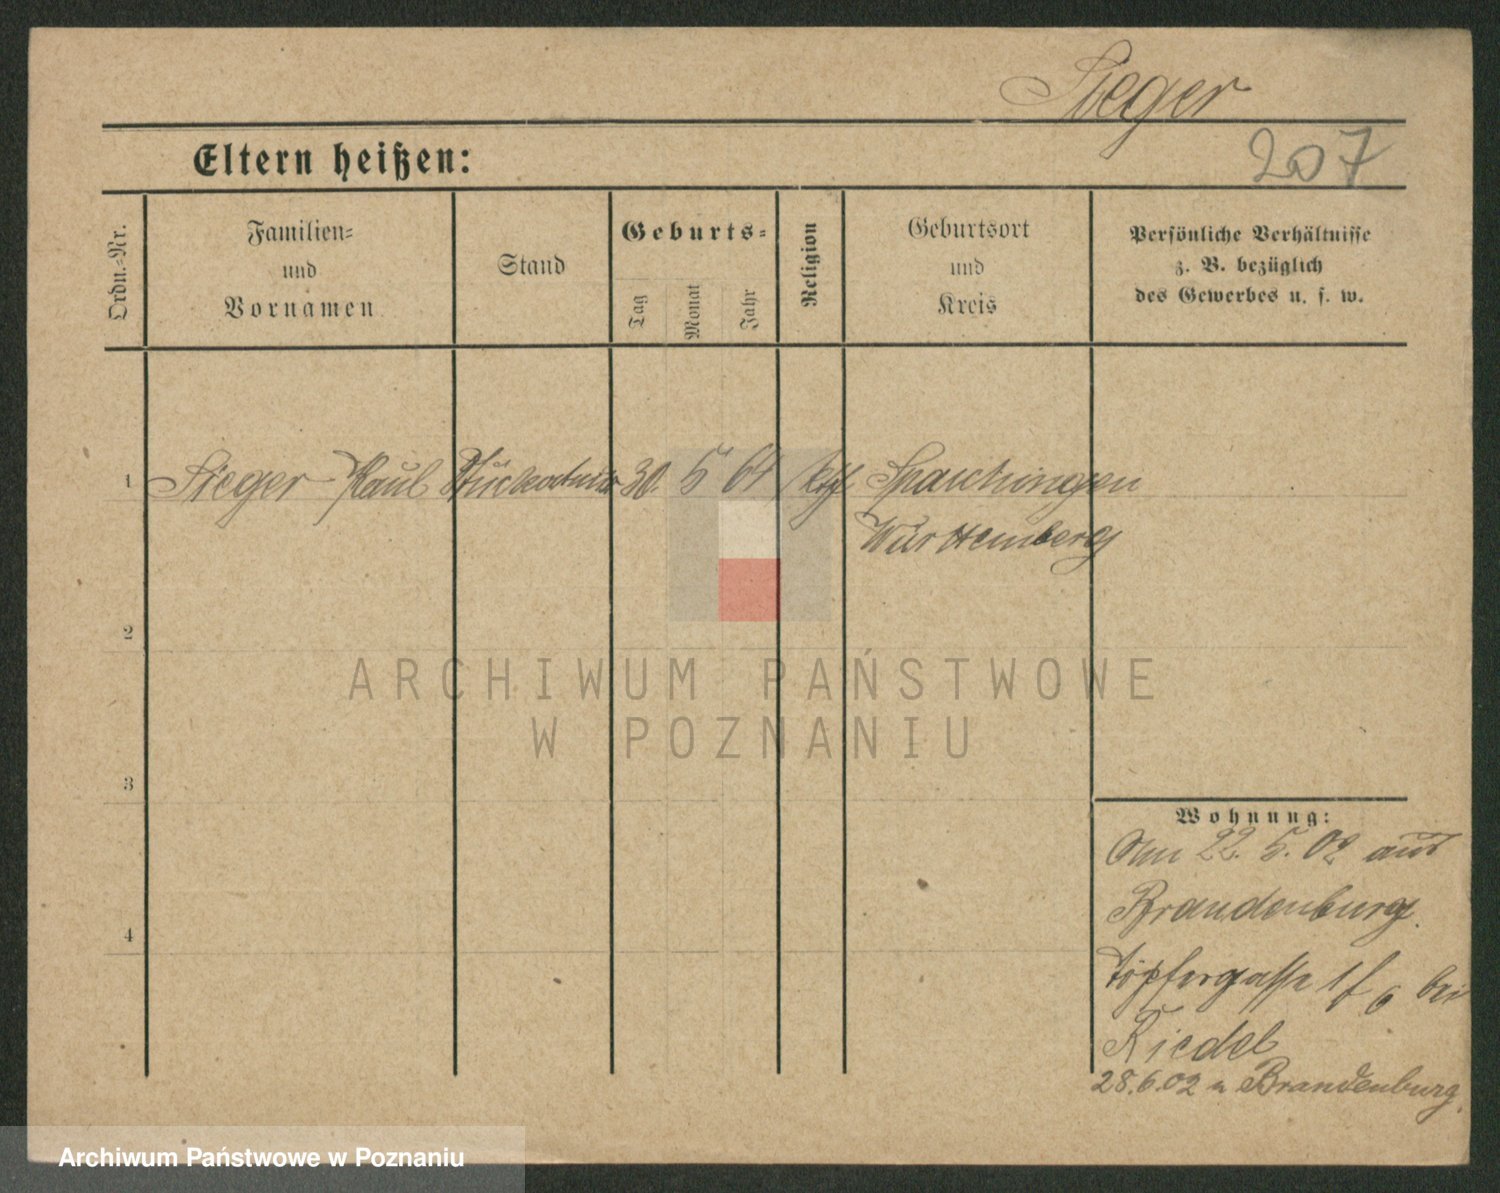 Sieger
207
Eltern heißen:
Ordn.-Nr.
Familien-
und
Vornamen
Stand
Geburts-
Tag
Monat
Jahr
Religion
Geburtsort
und
Kreis
Persönliche Verhältnisse
z. B. bezüglich
des Gewerbes u. s. w.
1 Sieger Paul Stuckateur 30. 5 64 kth Spaichingen
Württemberg
2
ARCHIWUM PAŃSTWOWE
W POZNANIU
3
Wohnung:
Am 22. 5. 02 aus
Brandenburg.
4
Töpfergasse 1 f 6 bei
Riedel
28.6.02 n Brandenburg.
Archiwum Państwowe w Poznaniu